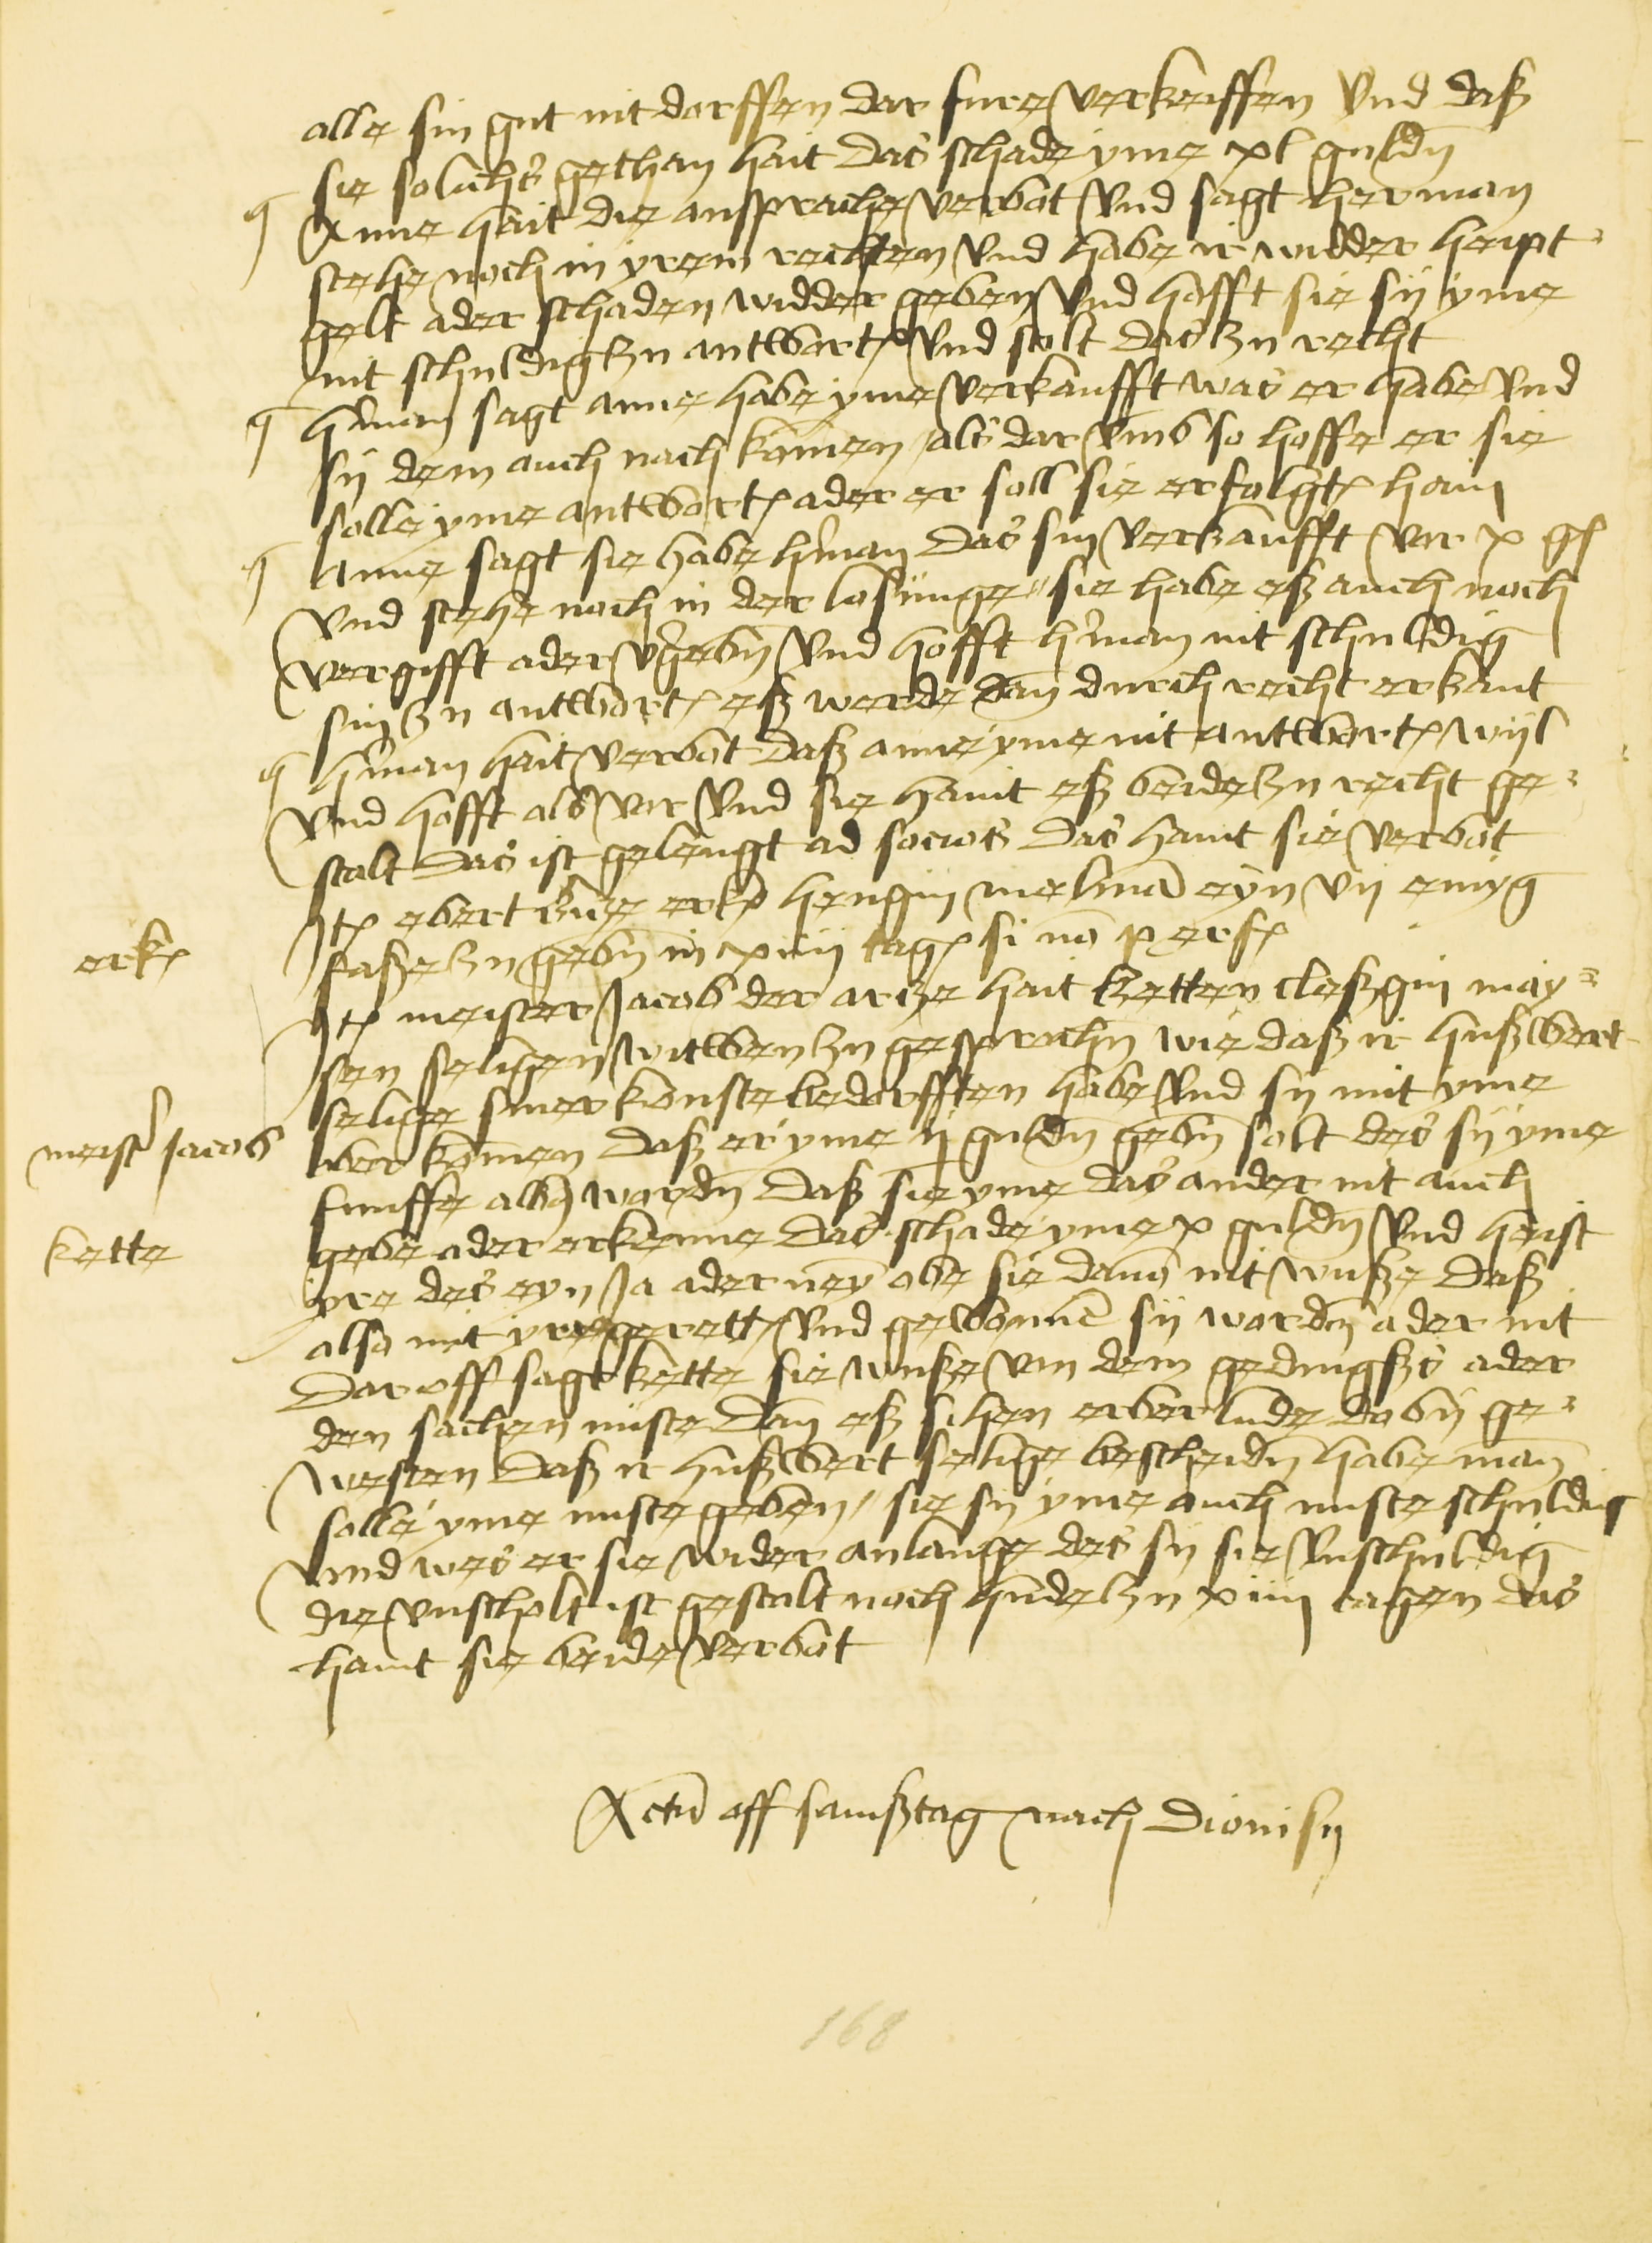 alle sin gut nit dorffen dar fure verkeuffen Vnd daß
sie solichs gethan hait das schade yme xl guldn̄
Anne hait die anspreche verbot Vnd sagt herman
stehe noch in yrem rechten Vnd habe ir widder heupt
gelt ader schaden widder geben Vnd hofft sie sij yme
nit schuldig zu antwort(e) Vnd stalt das zu recht
h'man sagt anne habe yme verkaufft was er habe Vnd
sij dem auch nach komen / als dar vmb so hoffe er sie
solle yme antwort(e) ader er soll sie erfolgt(e) hain
Anne sagt sie habe h'man das sin verkaufft vor x gl
Vnd stehe noch in der losunge // sie habe eß auch noch
vergifft ader v'gebn̄ Vnd hofft h'man nit schuldig
sin zu antwort(e) eß werde dan durch recht erkant
h'man hait verbot daß anne yme nit antwort(e) wijl
Vnd hofft als vor Vnd sie haint eß beide zu recht ge=
stalt das ist gelengt ad socios das haint sie verbot
erk(e)
It(em) ebert erk(e) hengin eyn vij emyg
faße zu gebn̄ in xiiij tag(e) si no(n) p erf(e)
It(em) meister Jacob der artze hait ketten cleßgin may=
sen seligen witwen zu gesprochn̄ wie daß ir hußwert
selige siner konste bedorfften habe Vnd sij mit yme
meist' Jacob
vber komen daß er yme ij guldn̄ gebn̄ solt des sij yme
funffe alb(us) wordn̄ daß sie yme das ander nit auch
kette
gebe ader erkenne das schade yme x guldn̄ Vnd heist
yre des eyn Ja ader ney obe sie dauo(n) nit wuße daß
also mit yre gerett(e) Vnd gewonne(n) sij wordn̄ ader nit
dar off sagt kette sie wuße von dem gedingkß ader
den sachen nuste dan eß sihen erber lude da by ge=
westen daß ir hußwert selige bescheidn̄ habe man
solle yme nuste geben / sie sij yme auch nuste schuldig
Vnd wes er sie wider anlange des sij sie vnschuldig
die vnscholt ist gestalt noch hude zu xiiij tagen das
haint sie beide verbot
Actu(m) off samßtag nach Dionisij
168